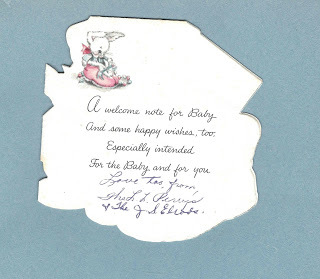 A welcome note for Baby
And some happy wishes, too,
Especially intended
For the Baby and for you
Love too from
The L. L. Perrys
& The J S Elrods.